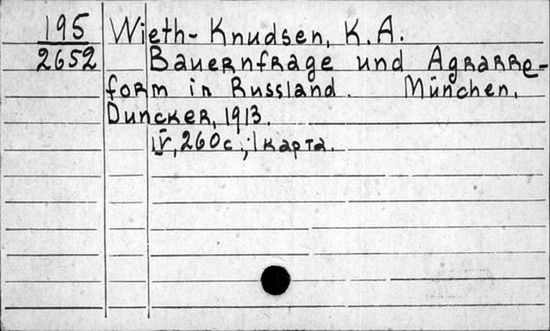 195 Wieth-Knudsen, K.A.
2652 Bauernfrage und Agrarre-
form in Russland. München,
Duncker, 1913.
IV, 260с., 1 карта.